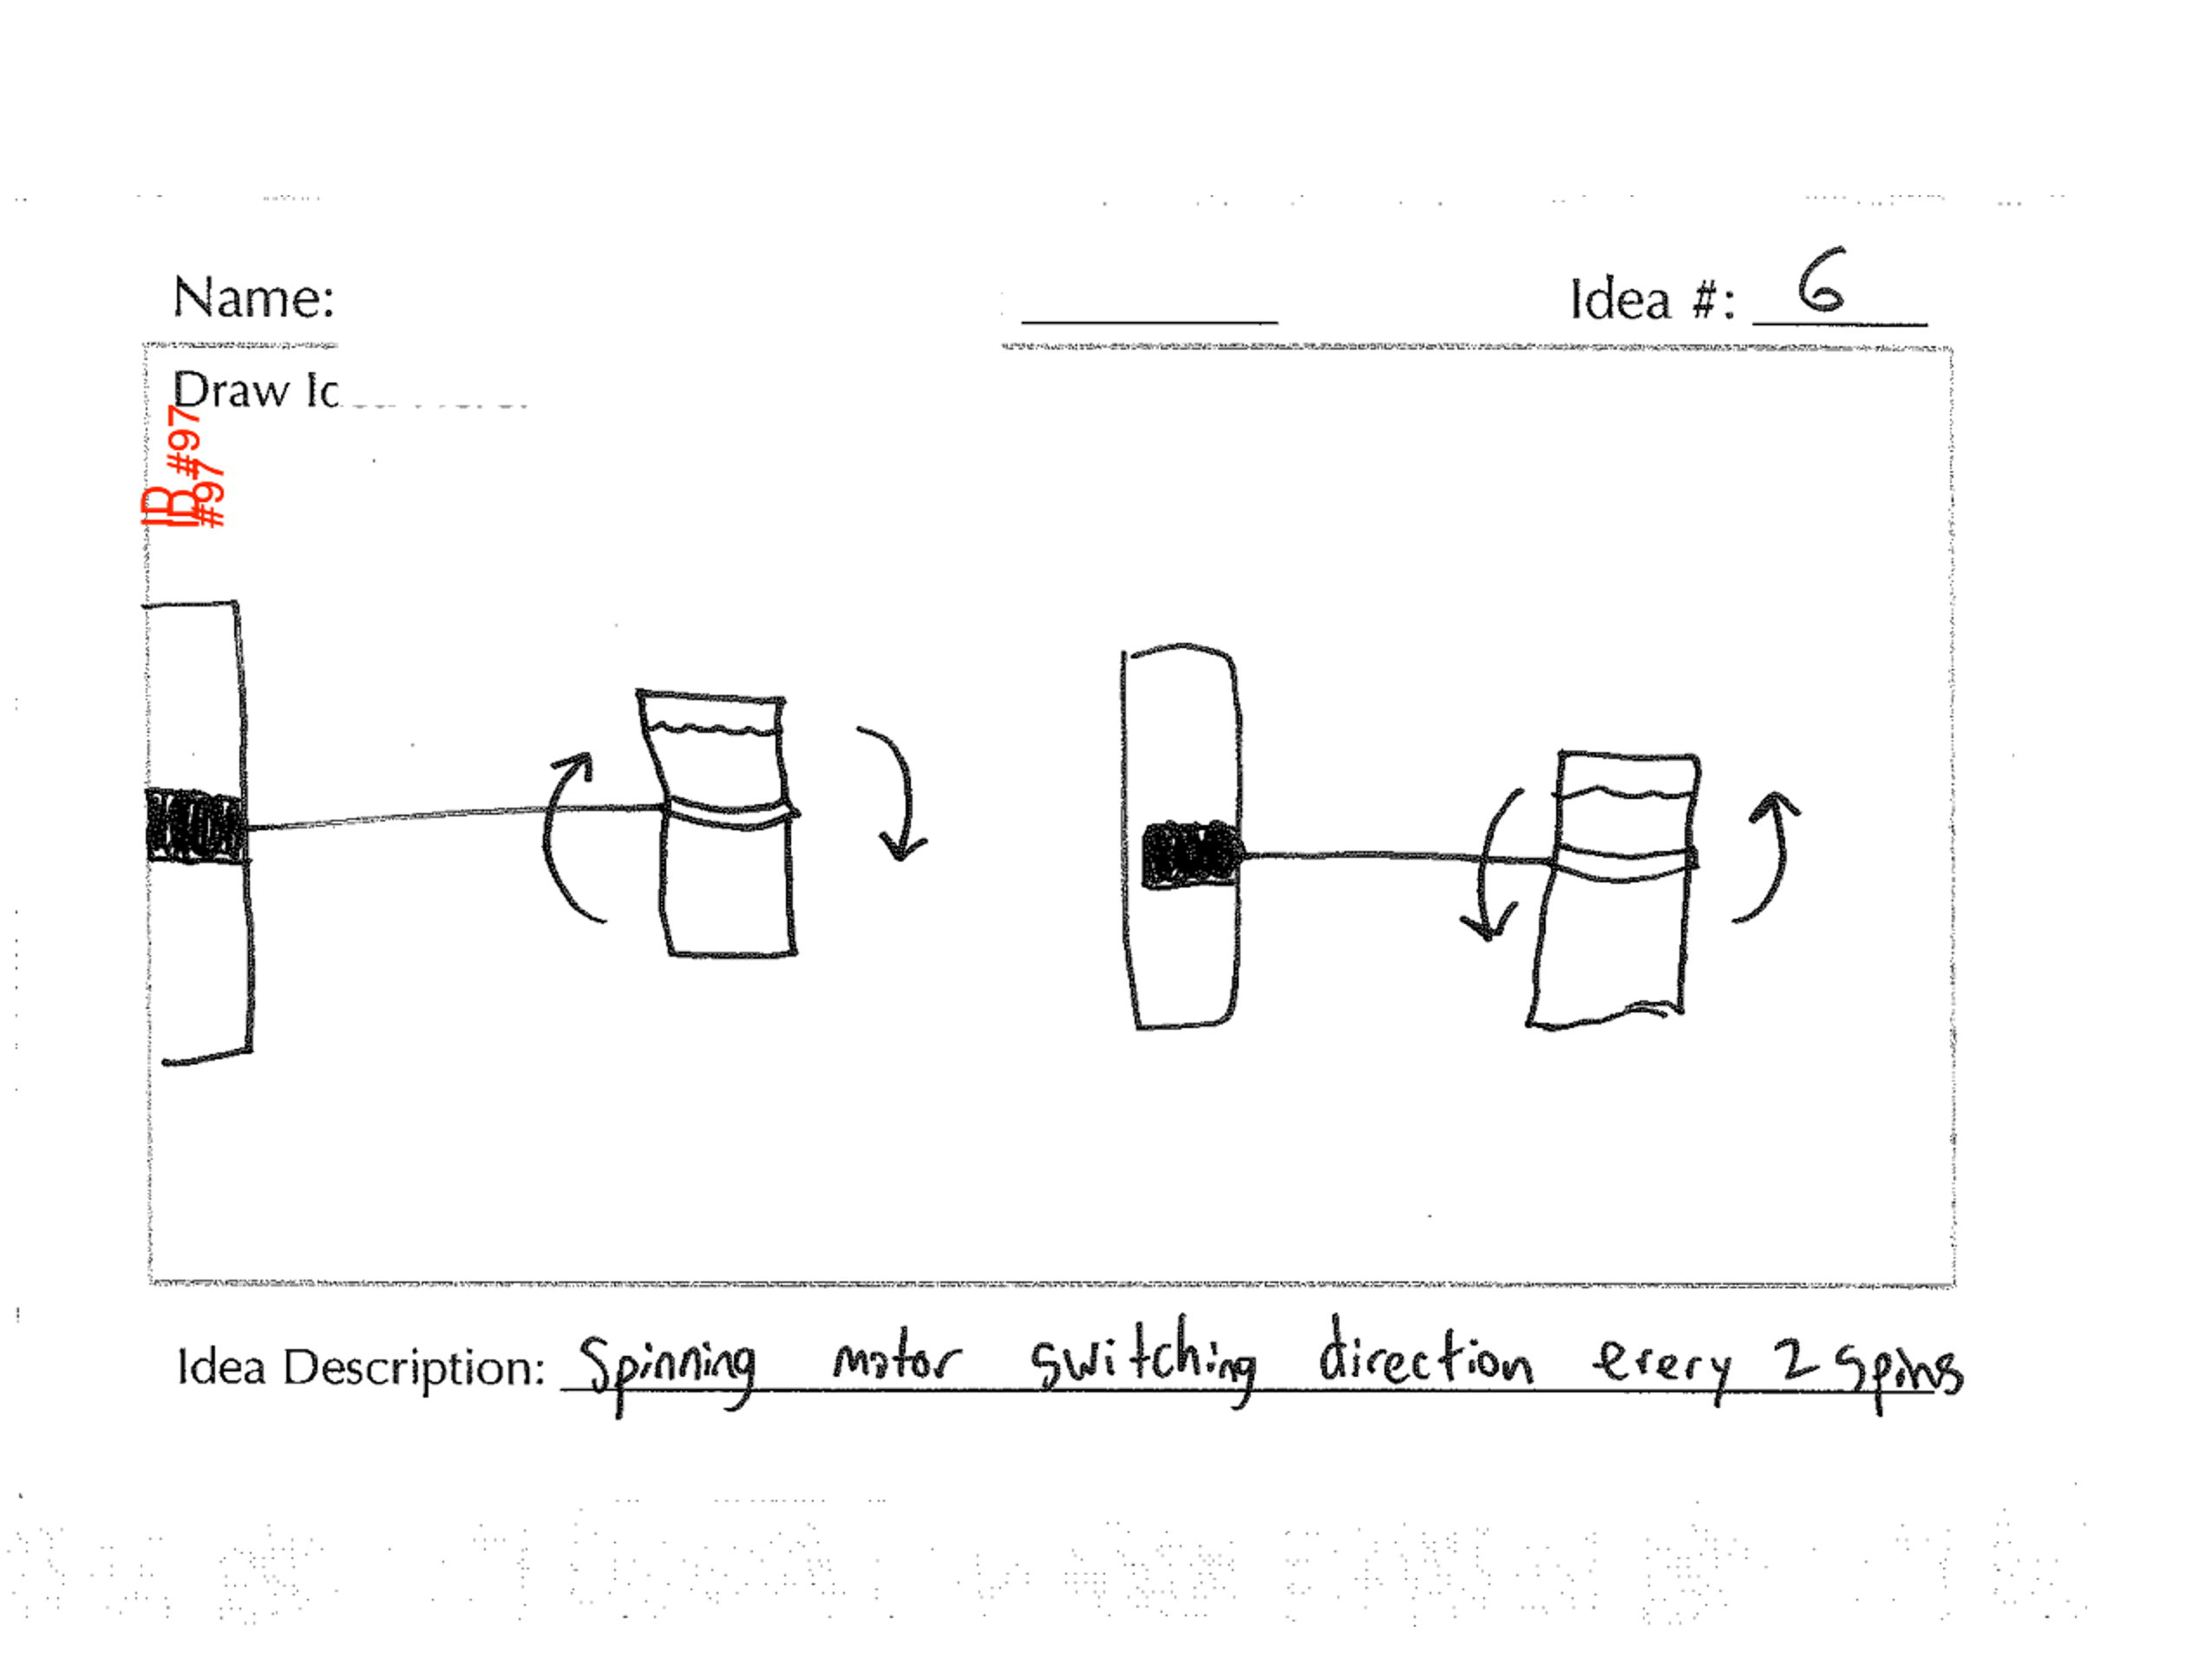 Name:
Idea #: 6
Draw Id
ID #97
ID
#97
Idea Description: Spinning motor switching direction every 2 spins